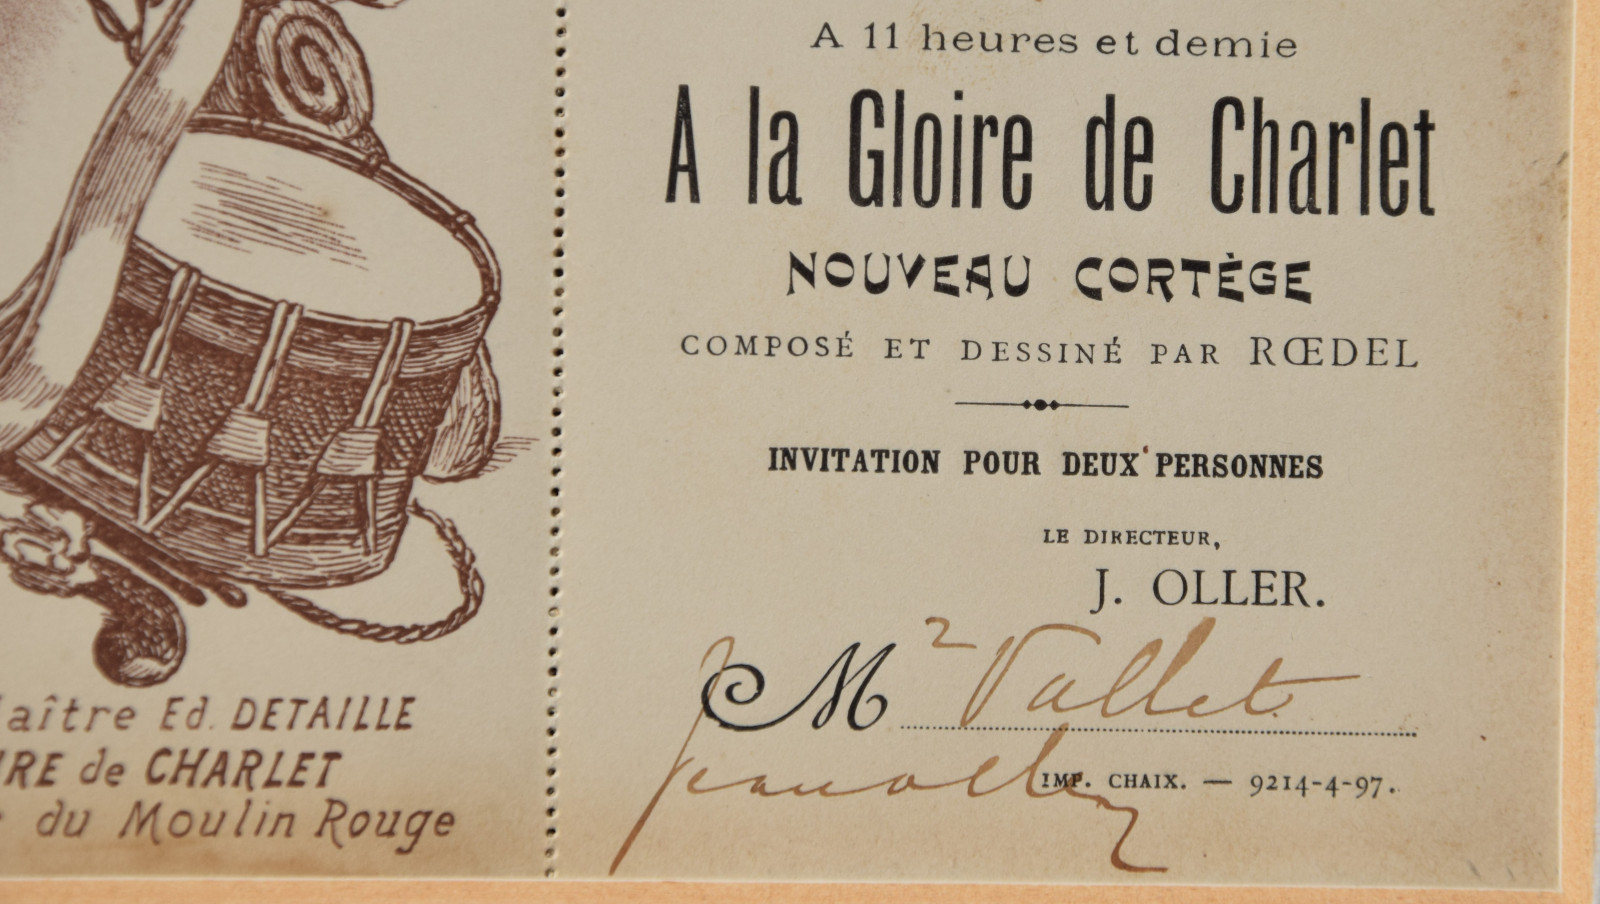 A 11 heures et demie
A la Gloire de Charlet
NOUVEAU CORTÈGE
COMPOSÉ ET DESSINÉ PAR RŒDEL
INVITATION POUR DEUX PERSONNES
LE DIRECTEUR,
J. OLLER.
M Vallet
IMP. CHAIX. — 9214-4-97.
aître Ed. DETAILLE
IRE de CHARLET
du Moulin Rouge